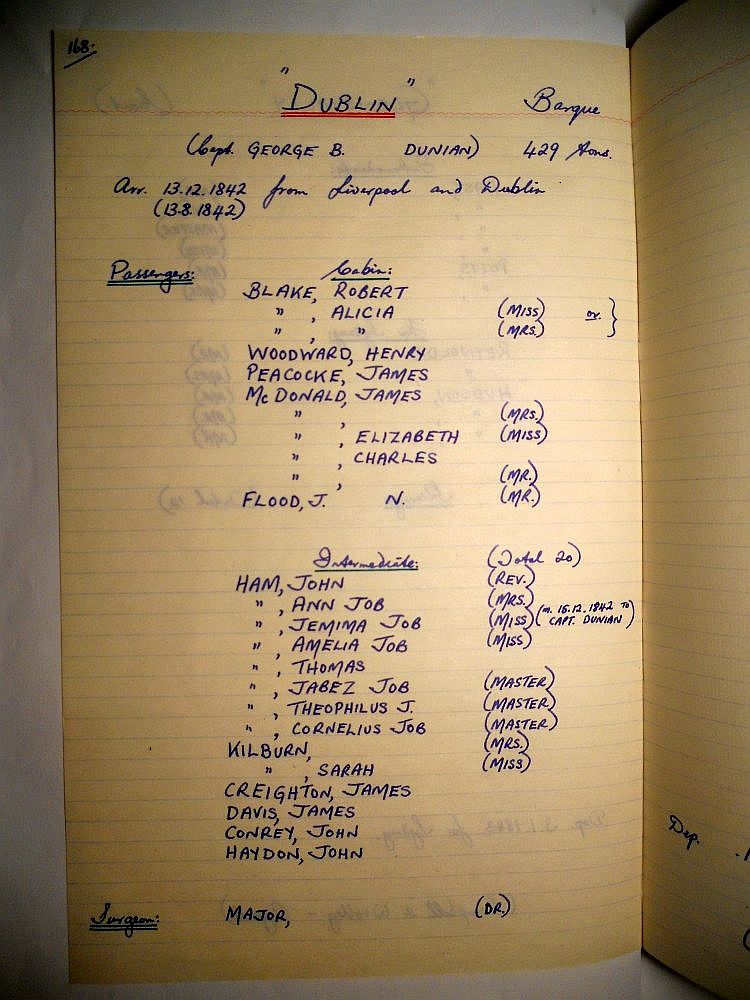 168.
"DUBLIN" Barque
(Capt. GEORGE B. DUNIAN) 429 tons.
Arr. 13.12.1842 from Liverpool and Dublin
(13.8.1842)
Passengers: Cabin:
BLAKE, ROBERT
" , ALICIA (MISS) or. }
" , " (MRS.)
WOODWARD, HENRY
PEACOCKE, JAMES
McDONALD, JAMES
" , (MRS.)
" , ELIZABETH (MISS)
" , CHARLES
" , (MR.)
FLOOD, J. N. (MR.)
Intermediate: (Total 20)
HAM, JOHN (REV.)
" , ANN JOB (MRS.)
" , JEMIMA JOB (MISS) (m. 16.12.1842 TO CAPT. DUNIAN)
" , AMELIA JOB (MISS)
" , THOMAS
" , JABEZ JOB (MASTER)
" , THEOPHILUS J. (MASTER)
" , CORNELIUS JOB (MASTER)
KILBURN, (MRS.)
" , SARAH (MISS)
CREIGHTON, JAMES
DAVIS, JAMES
CONREY, JOHN
HAYDON, JOHN
Surgeon: MAJOR, (DR.)
Dep.